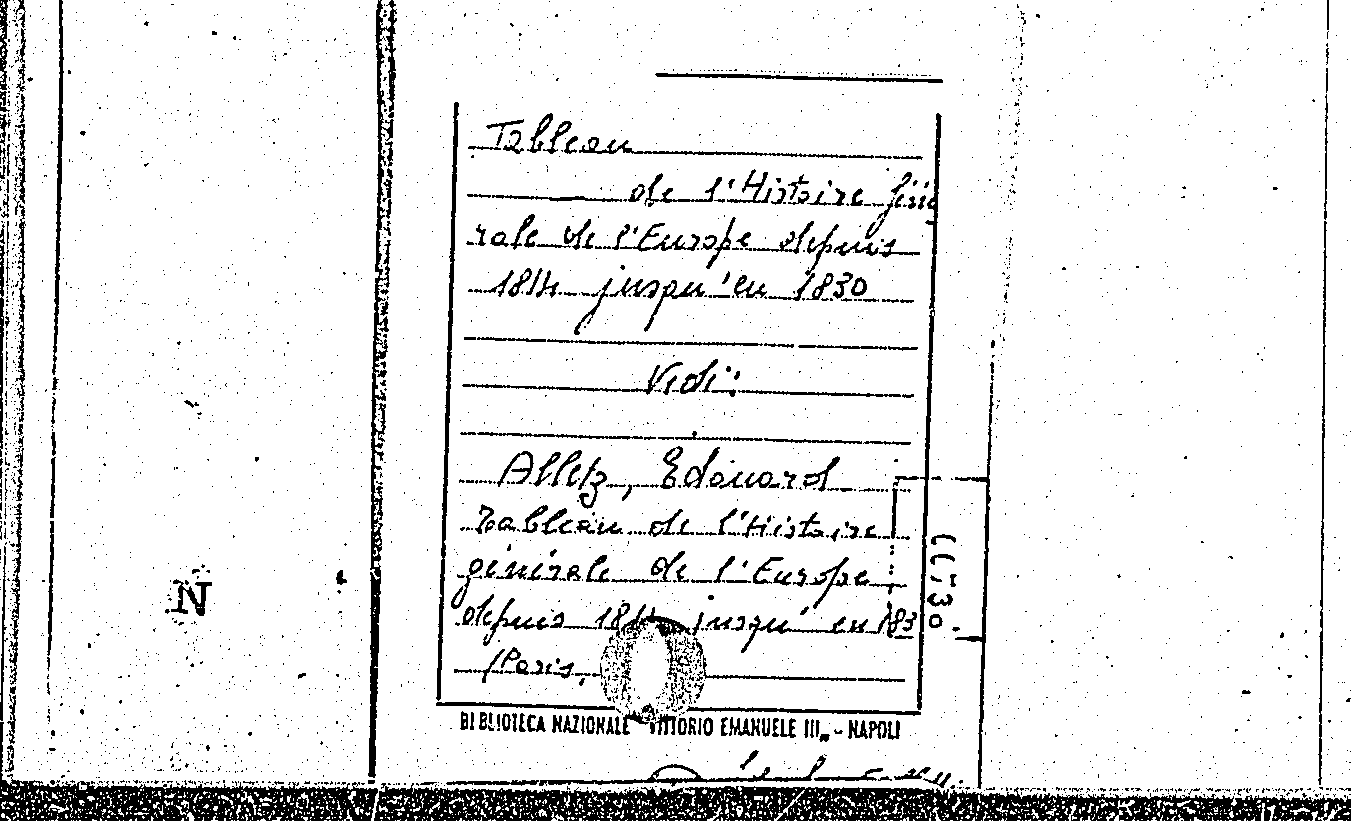 Tableau
de l'Histoire géné
rale de l'Europe depuis
1814 jusqu'en 1830
Vedi:
Alletz, Edouard
Tableau de l'Histoire
générale de l'Europe
depuis 1814 jusqu'en 183
(Paris,
BIBLIOTECA NAZIONALE VITTORIO EMANUELE III„ - NAPOLI
N